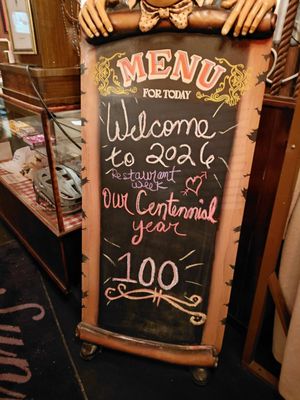 MENU
FOR TODAY
Welcome
to 2026
Restaurant
week
Our Centennial
year
100